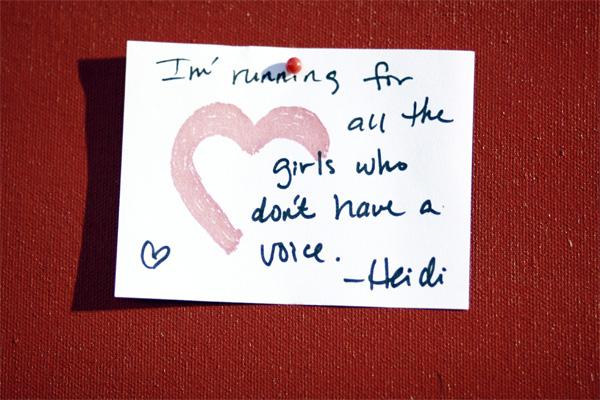 I'm running for
all the
girls who
don't have a
voice.
-Heidi